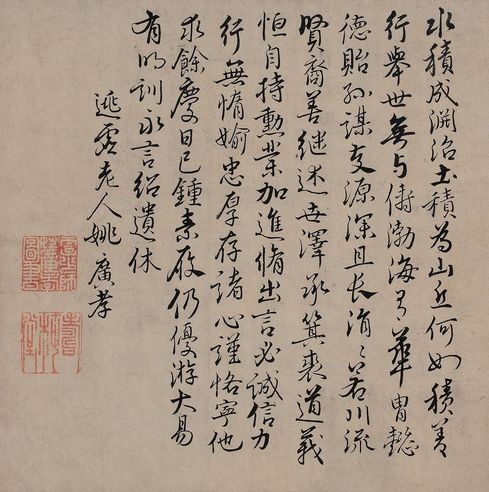 水積成淵沼土積為山丘何如積善
行舉世無与儔渤海有華胄懿
德貽孫謀发源深且长涓〻若川流
賢裔善継述世澤承箕裘道義
恒自持勳業加進脩出言必誠信力
行無惰媮忠厚存諸心謹恪寧他
求餘慶日已鍾素履仍優游大易
有明訓永言紹遺休
逃虛老人姚廣孝